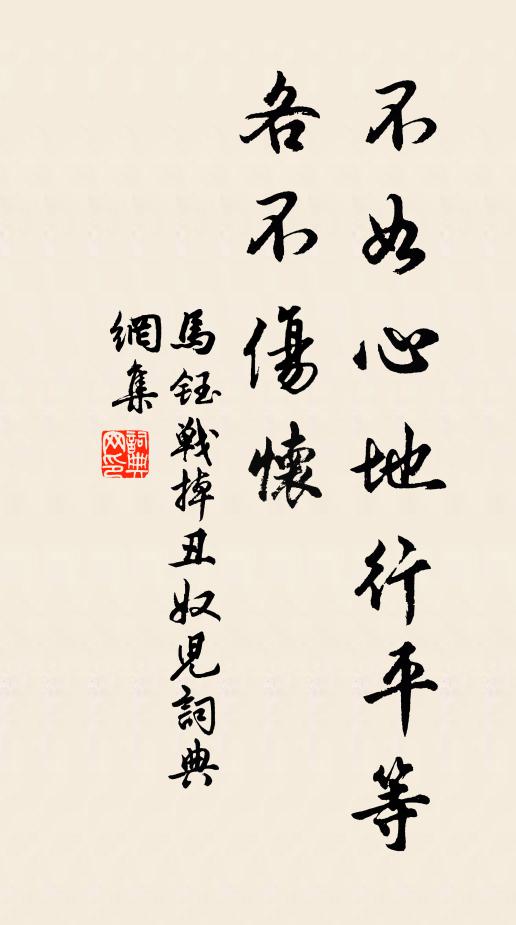 不如心地行平等
各不傷懷
馬鈺戰掉丑奴兒詞典
網集
詞典網印